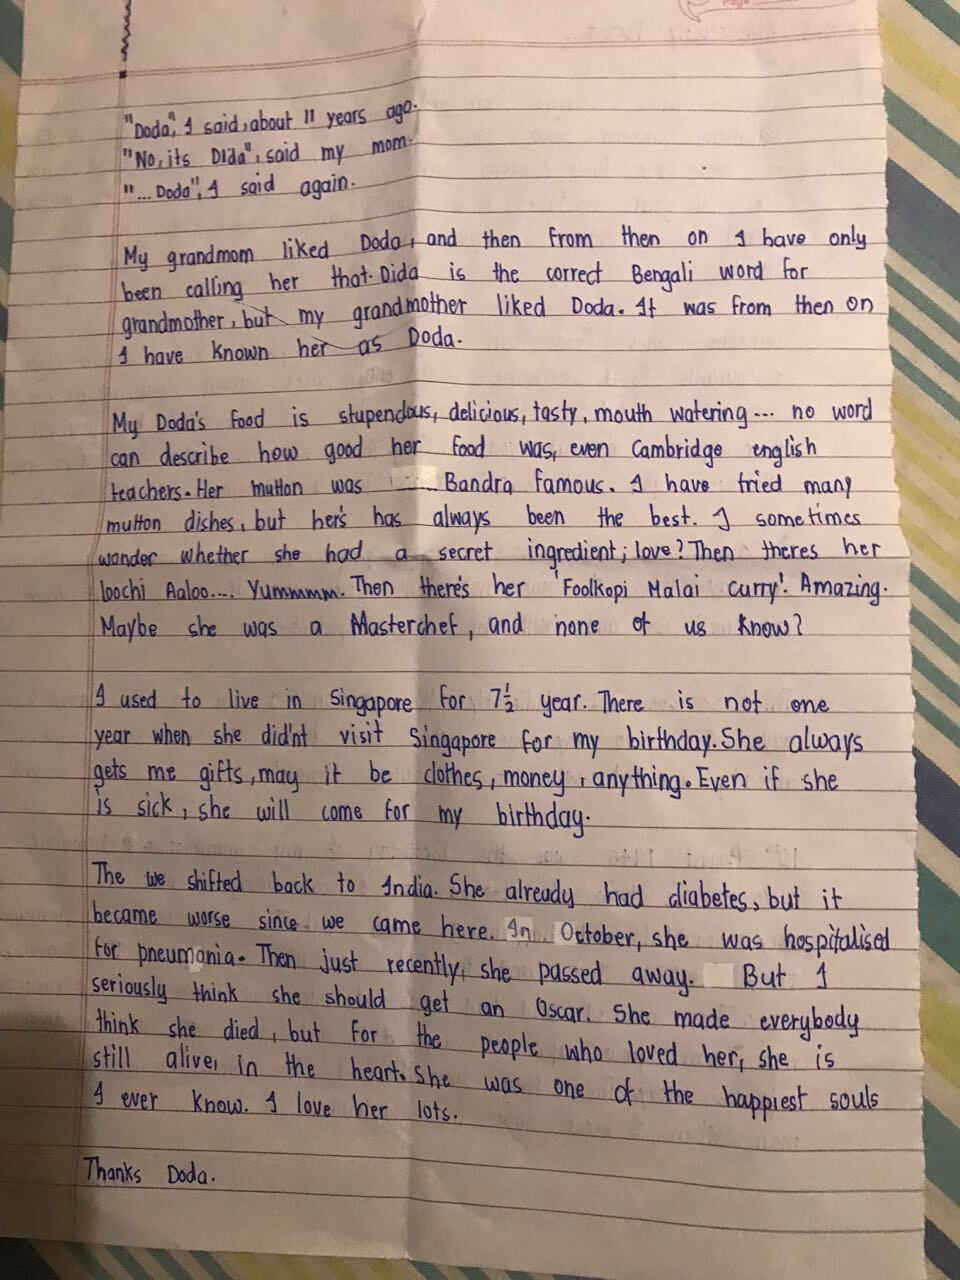 "Doda", I said, about 11 years ago.
"No, its Dida", said my mom.
"... Doda", I said again.
My grandmom liked Doda, and then from then on I have only
been calling her that. Dida is the correct Bengali word for
grandmother, but my grandmother liked Doda. It was from then on
I have known her as Doda.
My Doda's food is stupendous, delicious, tasty, mouth watering... no word
can describe how good her food was, even Cambridge english
teachers. Her mutton was Bandra famous. I have tried many
mutton dishes, but her's has always been the best. I sometimes
wonder whether she had a secret ingredient; love? Then theres her
loochi Aaloo.... Yummmm. Then there's her 'Foolkopi Malai curry'. Amazing.
Maybe she was a Masterchef, and none of us know?
I used to live in Singapore for 7½ year. There is not one
year when she did'nt visit Singapore for my birthday. She always
gets me gifts, may it be clothes, money, anything. Even if she
is sick, she will come for my birthday.
The we shifted back to India. She already had diabetes, but it
became worse since we came here. In October, she was hospitalised
for pneumania. Then just recently, she passed away. But I
seriously think she should get an Oscar. She made everybody
think she died, but for the people who loved her, she is
still alive, in the heart. She was one of the happiest souls
I ever know. I love her lots.
Thanks Doda.